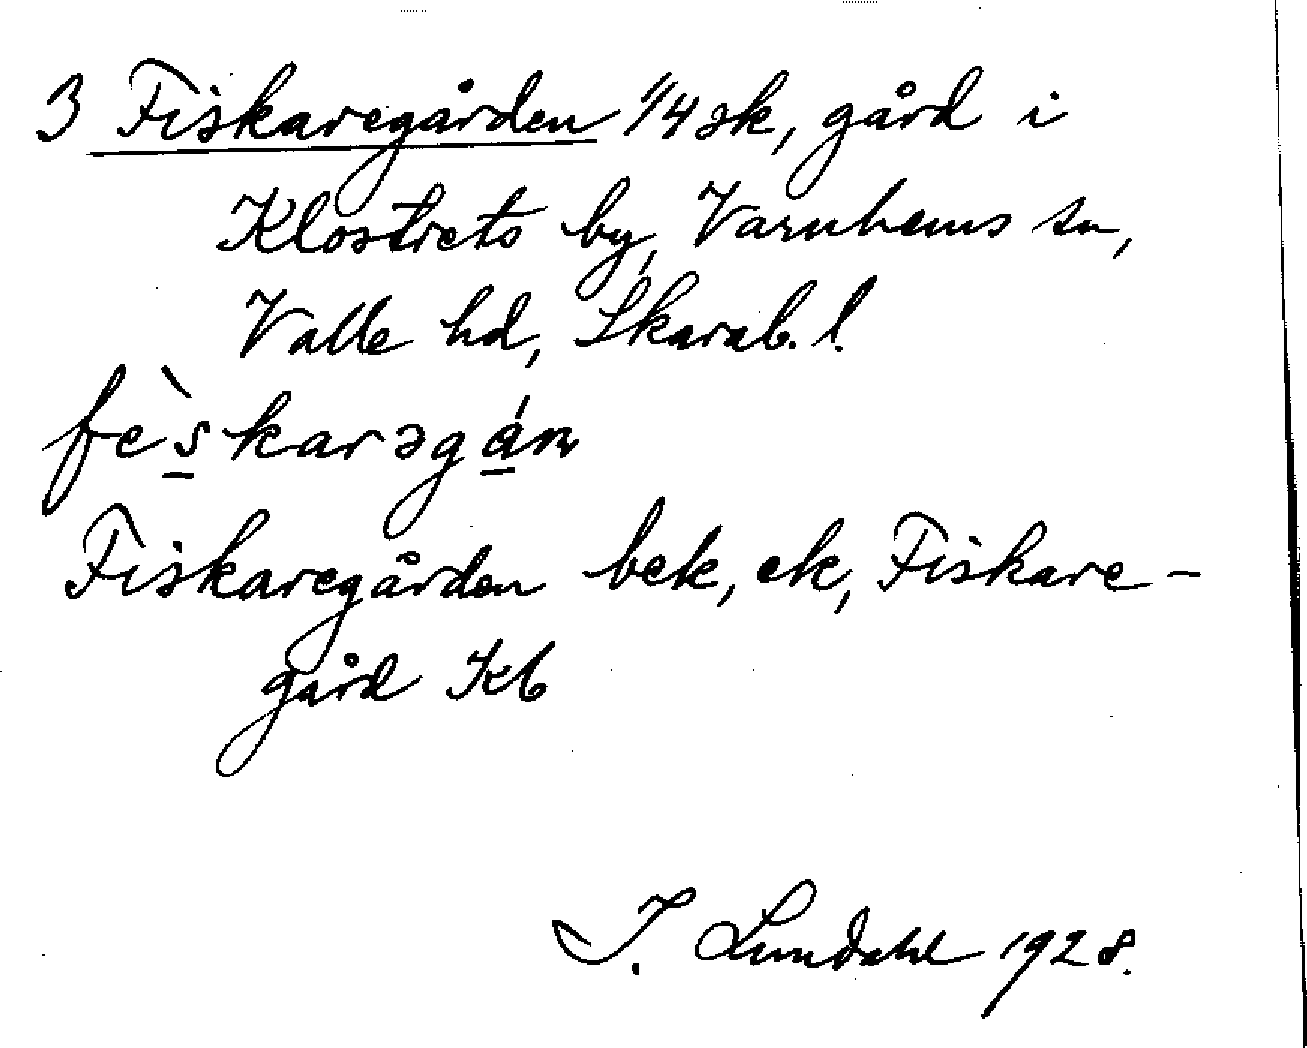 3 Fiskaregården 1/4 sk, gård i
Klostrets by, Varnhems sn,
Valle hd, Skarab. l.
fès̱karəgá̱n
Fiskaregården bek, ek, Fiskare-
gård Kb
I. Lundahl 1928.